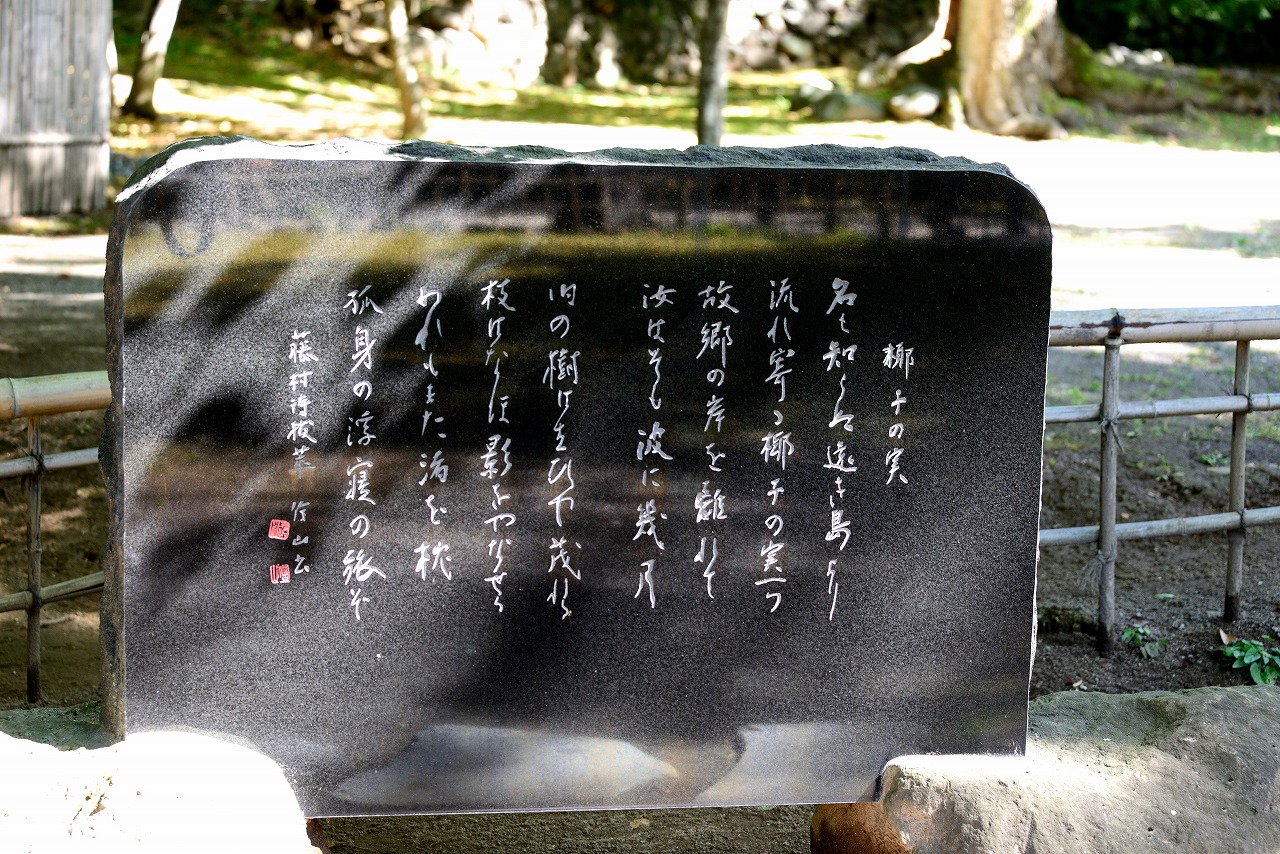 椰子の実
名も知らぬ遠き島より
流れ寄る椰子の実一つ
故郷の岸を離れて
汝はそも波に幾月
旧の樹は生ひや茂れる
枝はなほ影をやなせる
われもまた渚を枕
孤身の浮寝の旅ぞ
藤村詩抜萃 山書